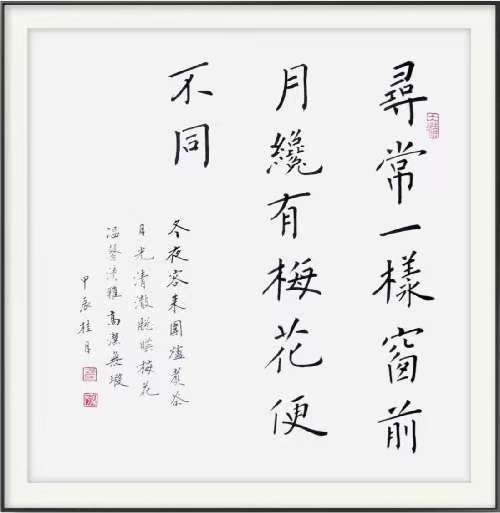 尋常一樣窗前
月纔有梅花便
不同
冬夜客来圍爐煮茶
月光清澈映梅花
温馨淡雅高潔無瑕
甲辰桂月